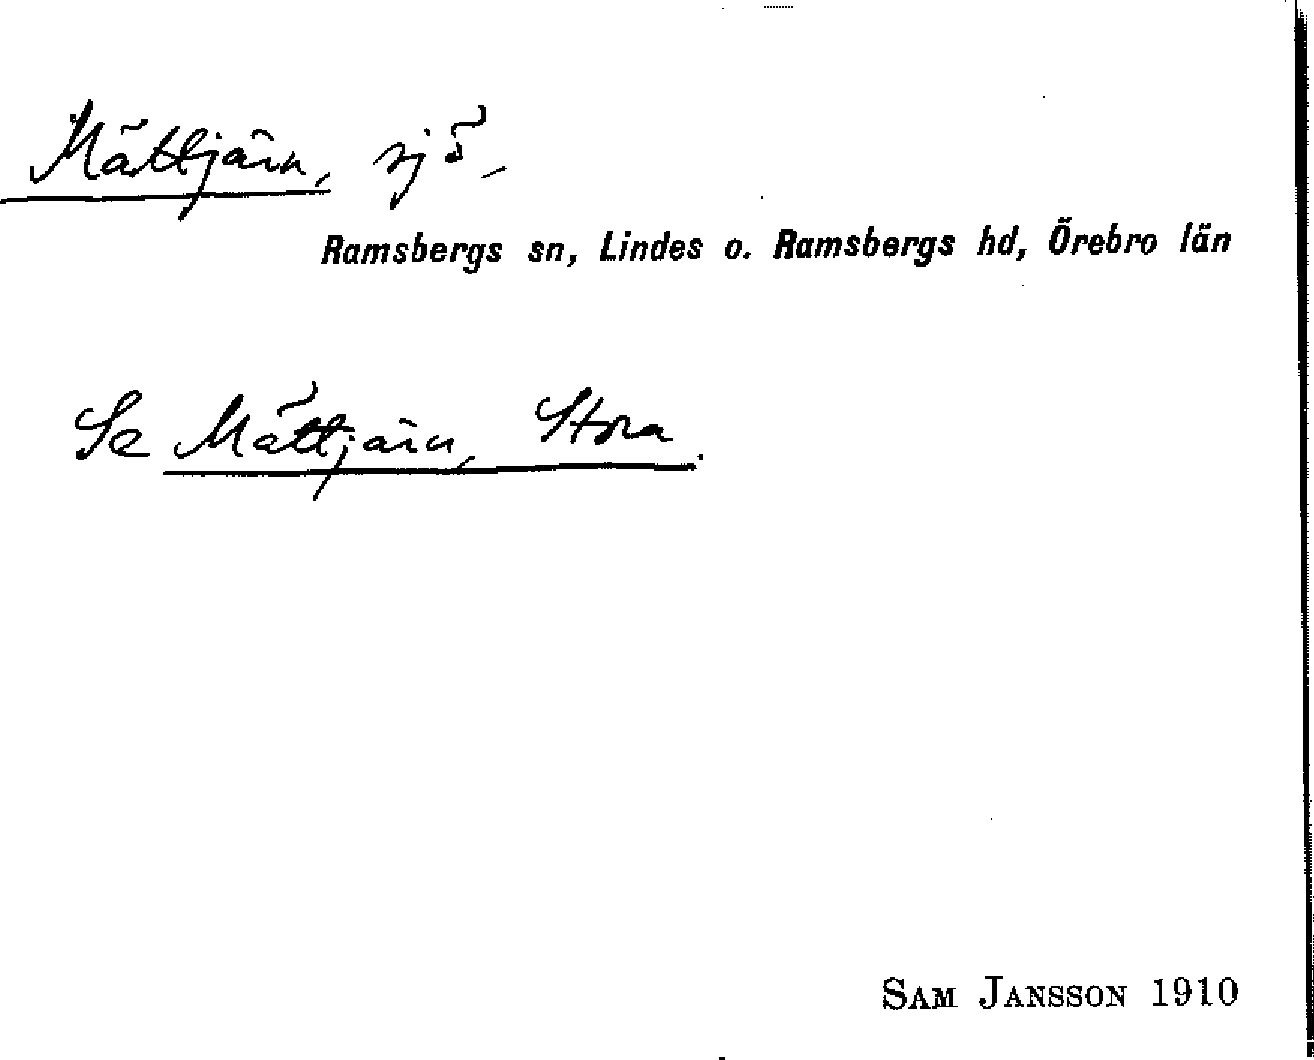 Mättjärn, sjö,
Ramsbergs sn, Lindes o. Ramsbergs hd, Örebro län
Se Mättjärn, Stora.
SAM JANSSON 1910